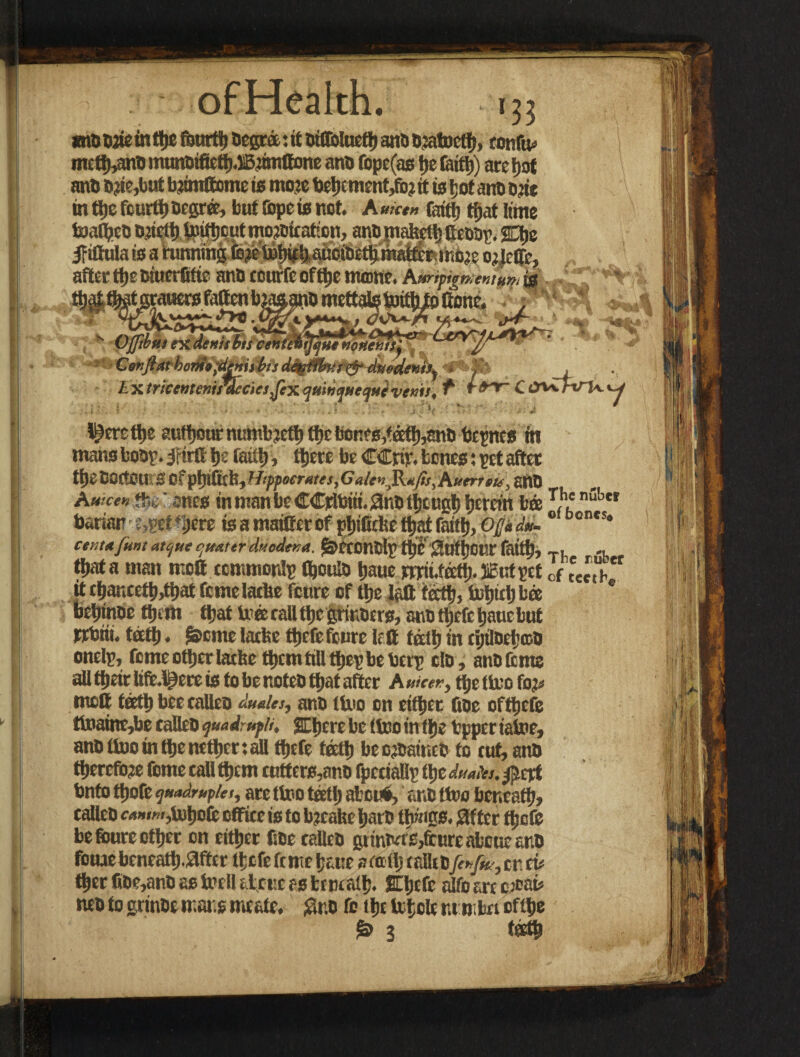 of Health. 133
and drie in the fourth degrée: it dissolueth and draweth, consu-
meth, and mundifieth. Brimstone and sope (as he saith) are hot
and drie, but brimstome is more vehement, for it is hot and drie
in the fourth degrée, but sope is not. Auicen saith that lime
washed drieth without mordication, and maketh steddy. The
Fistula is a running sore which auoideth matter more or lesse,
after the diuersitie and course of the moone. Auripigmentum is
that that grauers fasten bras and mettals with to stone.
Ossibus ex denis bis centenisque nouenis,
Constat homo, denis bis dentibus & duodenis,
Ex tricentenis decies sex quinqueque venis.
Here the authour numbreth the bones, téeth, and veynes in
mans body. First he saith, there be CCxix. bones: yet after
the Doctours of phisick, Hippocrates, Galen, Rasis, Auerrous, and
Auicen the bones in man be CCxlviii. And though herein bée
varian ce, yet there is a maister of phisicke that saith, Ossa du-
centa sunt atque quater duodena. Secondly the Authour saith,
that a man most commonly should haue xxxii. téeth. But yet
it chanceth, that some lacke foure of the last téeth, which bée
behinde them that wée call the grinders, and these haue but
xxviii. téeth. Some lacke these foure last téeth in childehood
onely, some other lacke them till they be very old, and some
all their life. Here is to be noted that after Auicen, the two for-
most téeth bee called duales, and two on either side of these
twaine, be called quadrupli. There be two in the vpper iawe,
and two in the nether: all these téeth be ordained to cut, and
therefore some call them cutters, and specially the duales. Next
vnto those quadruples, are two téeth aboue, and two beneath,
called canini, whose office is to breake hard things. After these
be foure other on either side called grinders, foure aboue and
foure beneath. After these some haue a téeth called sensus, on ei-
ther side, and as well aboue as beneath. These also are ordai-
ned to grinde mans meate. And so the whole number of the
S 3 téeth
The nũber
of bones.
The nũber
of teeth.